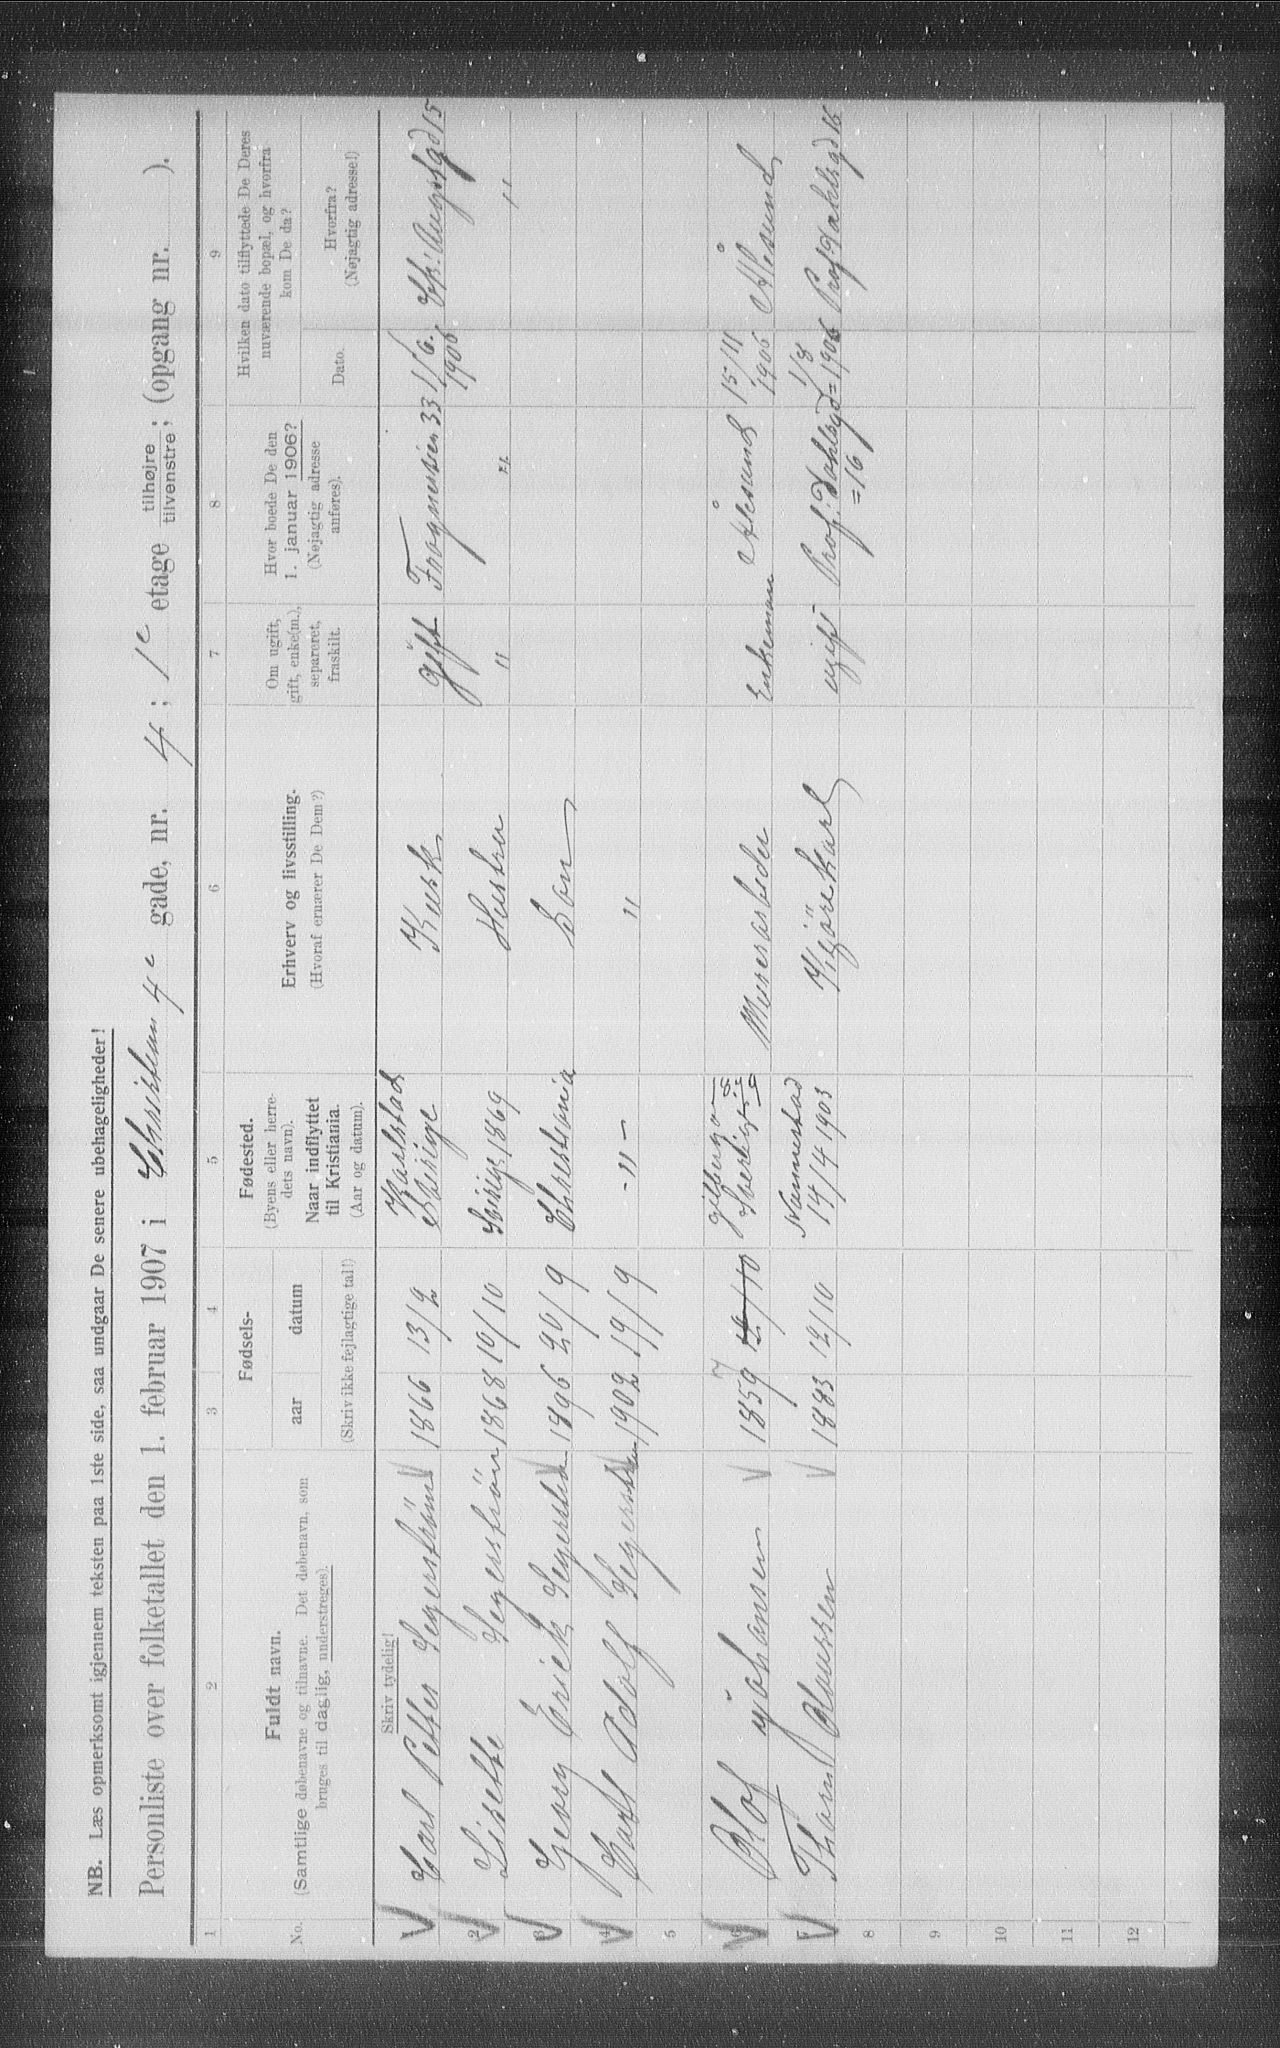 NB. Læs opmerksomt igjennem teksten paa 1ste side, saa undgaar De senere ubehageligheder!
Personliste over folketallet den 1. februar 1907 i Christian 4e gade, nr. 4; 1e etage tilhøjre tilvenstre; (opgang nr. ).
1 2 3 4 5 6 7 8 9
No.
Fuldt navn.
(Samtlige døbenavne og tilnavne. Det døbenavn, som
bruges til daglig, understreges).
Fødsels-
aar datum
(Skriv ikke fejlagtige tal!)
Fødested.
(Byens eller herre-
dets navn).
Naar indflyttet
til Kristiania.
(Aar og datum).
Erhverv og livsstilling.
(Hvoraf ernærer De Dem?)
Om ugift,
gift, enke(m.),
separeret,
fraskilt.
Hvor boede De den
1. januar 1906?
(Nøjagtig adresse
anføres).
Hvilken dato tilflyttede De Deres
nuværende bopæl, og hvorfra
kom De da?
Dato.
Hvorfra?
(Nøjagtig adresse!)
Skriv tydelig!
Carl Petter Segerström 1866 13/2 Karlstad Sverige Kusk gift Frognerveien 33 1/6 1906
2 Lisette Segerström 1868 10/10 Sverige 1869 Hustru " " "
3 Georg Erick 1896 20/9 Christiania Søn
4 Carl Adolf 1902 19/9 -"- "
5
6 Olof Johansen 1859 12/10 Sverige Murerarbeider Enkemand Ålesund 15/11 1906 Ålesund
7 Thorvd 1883 12/10 14/4 1903 Kjørekarl ugift Prof: Dahlsgd = 16 1/8 1906 Prof Dahlsgd 16
8
9
10
11
12